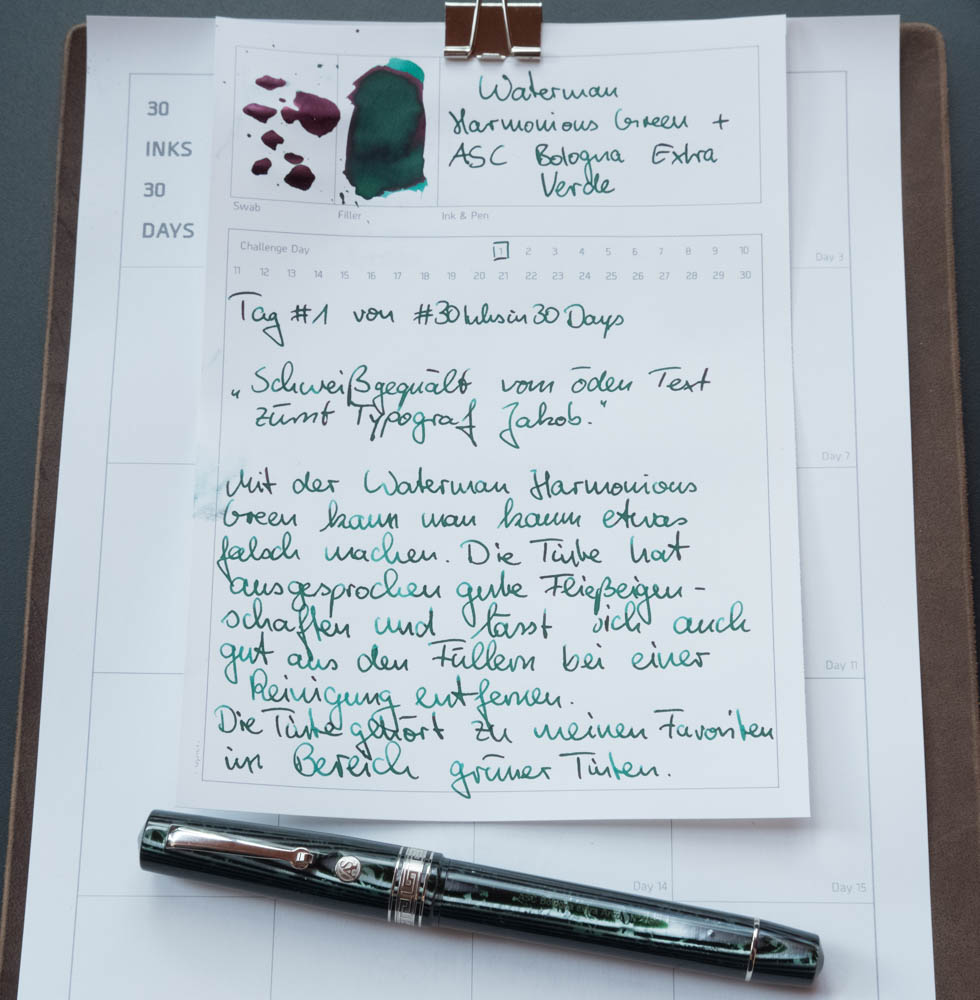 30
INKS
30
DAYS
Waterman
Harmonious Green +
ASC Bologna Extra
Verde
Swab
Filler
Ink & Pen
Challenge Day
1 2 3 4 5 6 7 8 9 10
11 12 13 14 15 16 17 18 19 20 21 22 23 24 25 26 27 28 29 30
Tag #1 von #30Inksin30Days
„Schweißgequält vom öden Text
zürnt Typograf Jakob.“
Mit der Waterman Harmonious
Green kann man kaum etwas
falsch machen. Die Tinte hat
ausgesprochen gute Fließeigen-
schaften und lässt sich auch
gut aus den Füllern bei einer
Reinigung entfernen.
Die Tinte gehört zu meinen Favoriten
im Bereich grüner Tinten.
Day 3
Day 7
Day 11
Day 14
Day 15